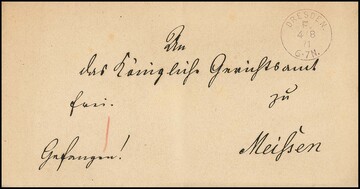 An
das Königliche Gerichtsamt
frei. zu
Gefangen! Meissen
DRESDEN.
F.
4 8
6-7N.